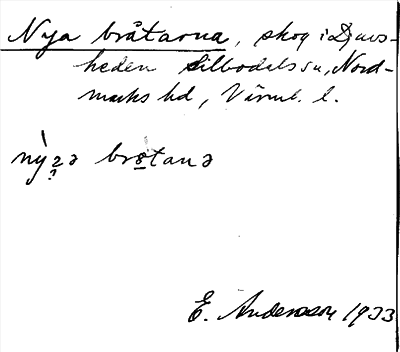 Nya bråtarna, skog i Djurs-
heden Silbodals sn, Nord-
marks hd, Värml. l.
brotanə
E. Andersson 1933